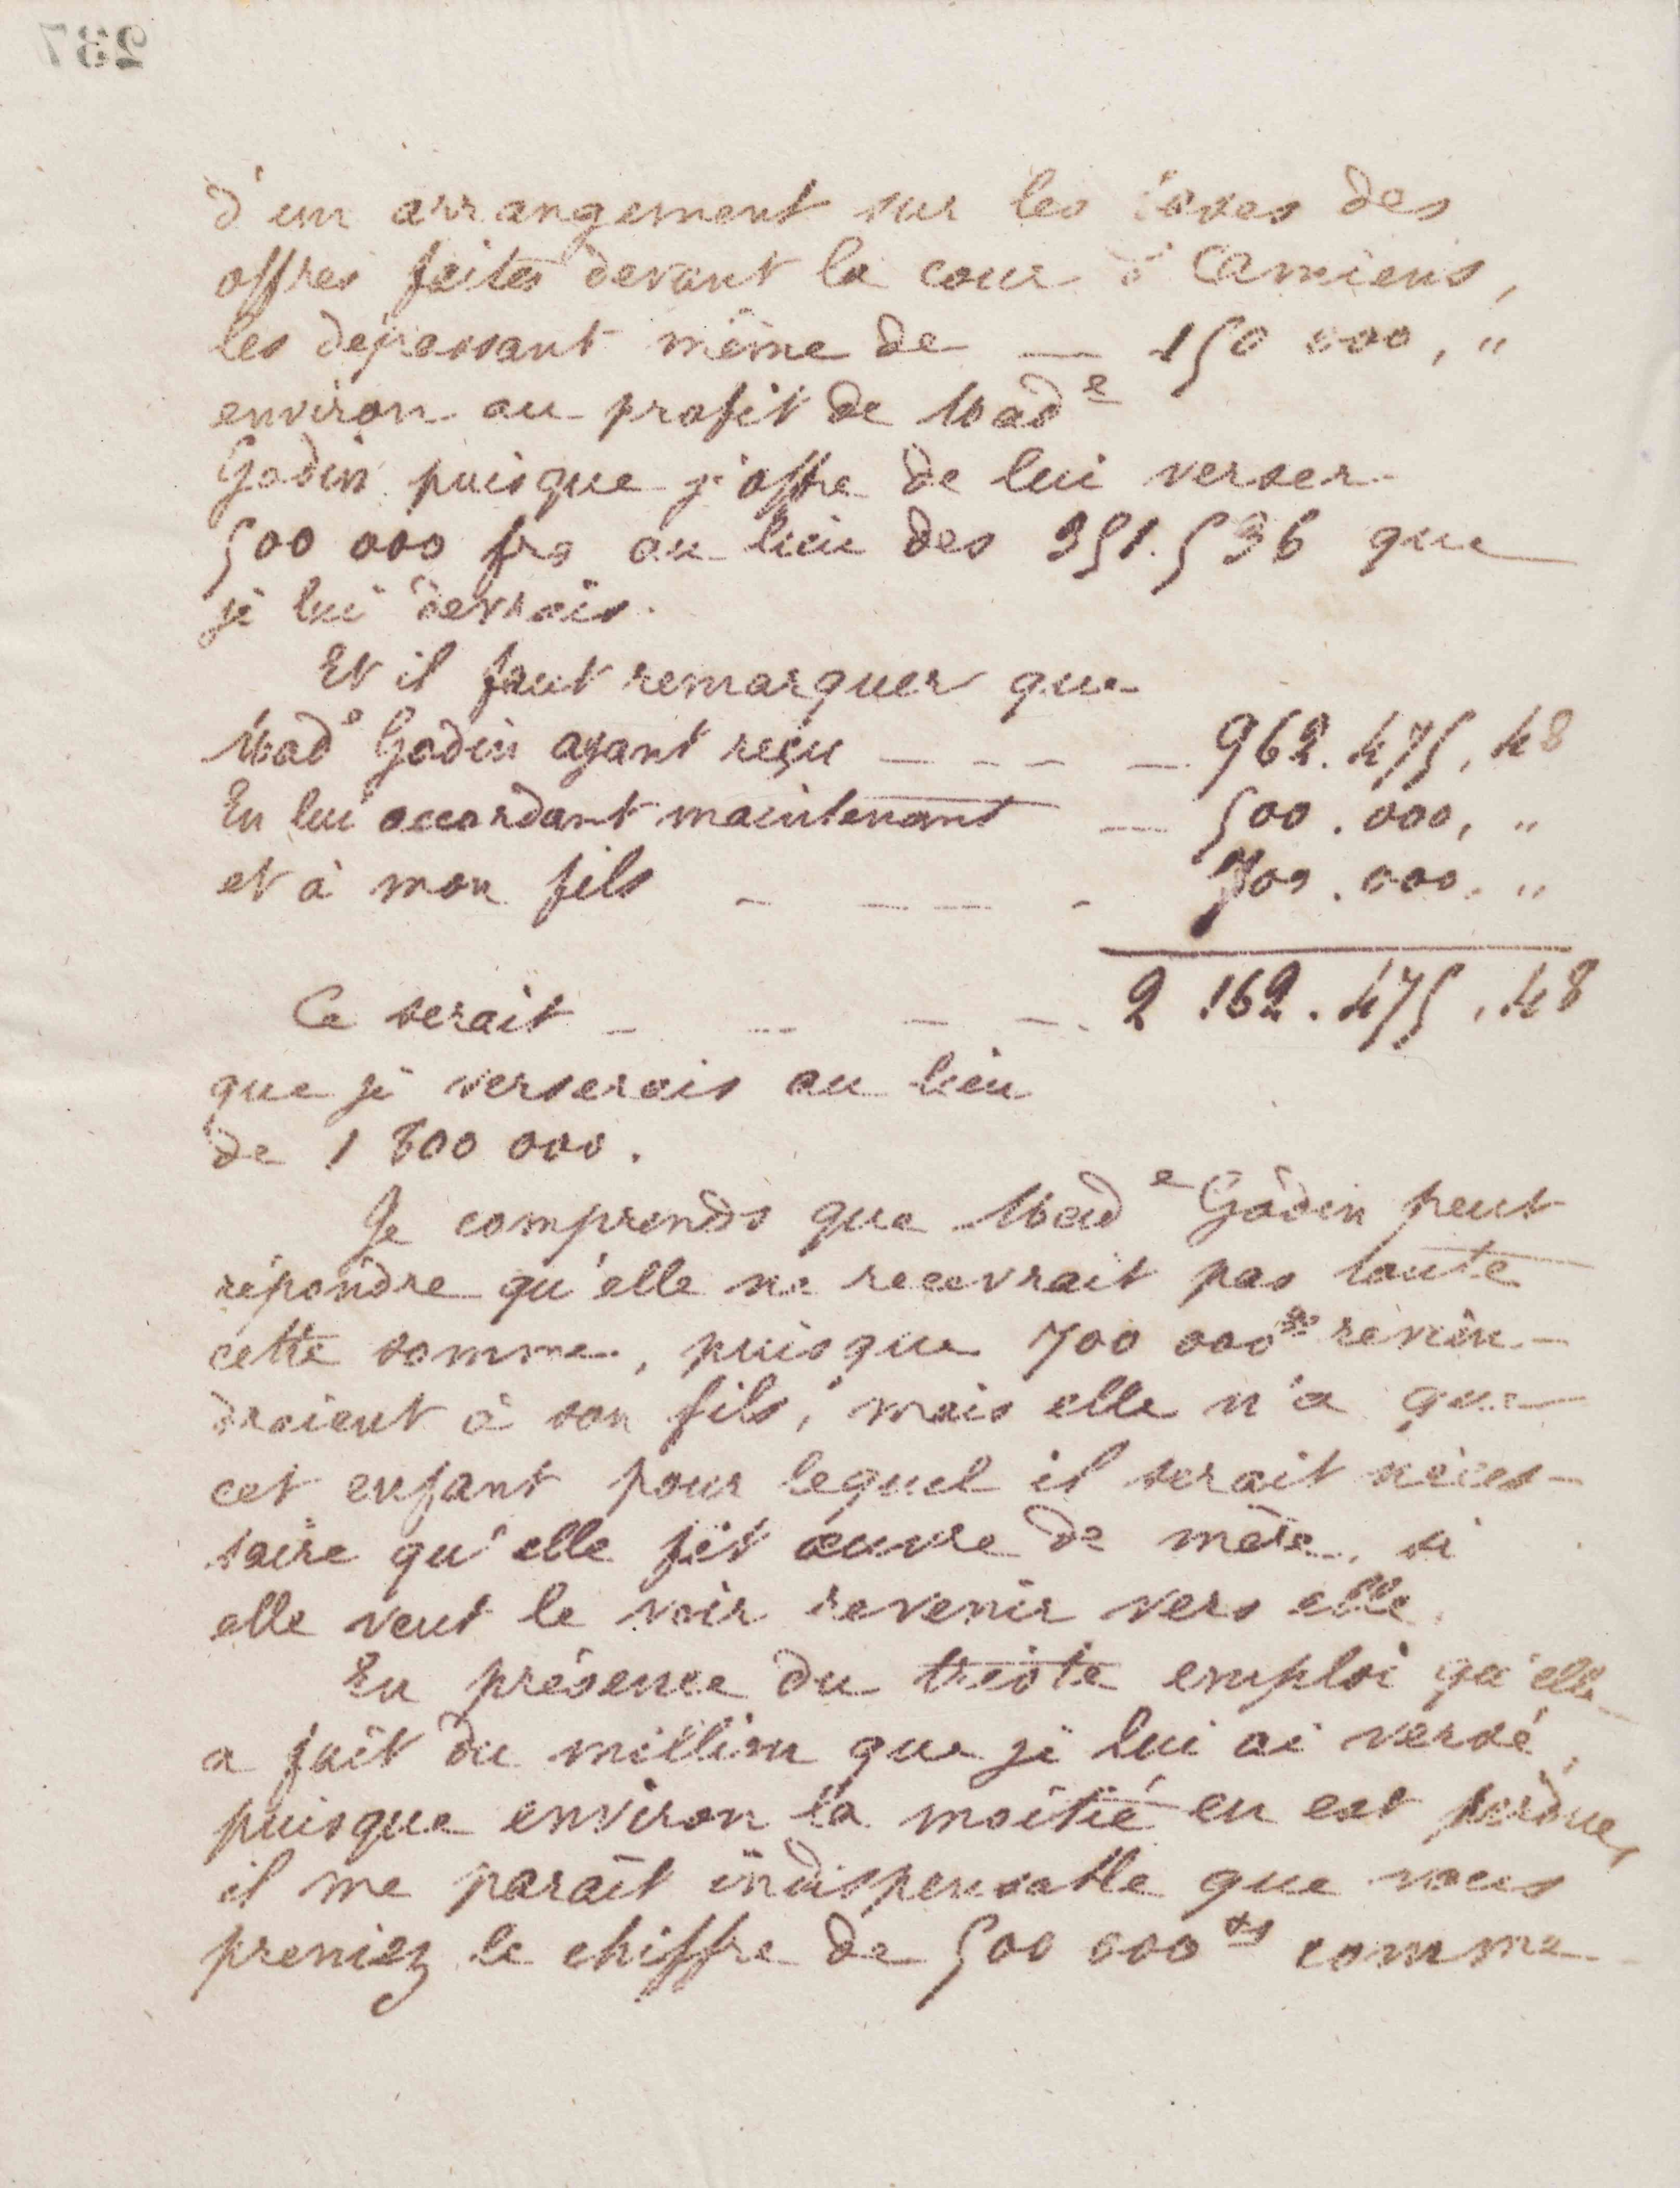 237
d'un arrangement sur les bases des
offres faites devant la cour d'Amiens,
les dépassant même de — 150 000, "
environ au profit de Madᵉ
Godin puisque j'offre de lui verser
500 000 frs au lieu des 351.536 que
je lui devrais.
Et il faut remarquer que
Madᵉ Godin ayant reçu — — — — 962.475,48
En lui accordant maintenant — 500.000, "
et à mon fils — — — — 700.000, "
Ce serait — — — — 2.162.475,48
que je verserais au lieu
de 1 800 000.
Je comprends que Madᵉ Godin peut
répondre qu'elle ne recevrait pas toute
cette somme, puisque 700 000 revien-
draient à son fils, mais elle n'a que
cet enfant pour lequel il serait néces-
saire qu'elle fit œuvre de mère, si
elle veut le voir revenir vers elle.
En présence du triste emploi qu'elle
a fait du million que je lui ai versé,
puisque environ la moitié en est perdue,
il me parait indispensable que vous
preniez le chiffre de 500 000 comme